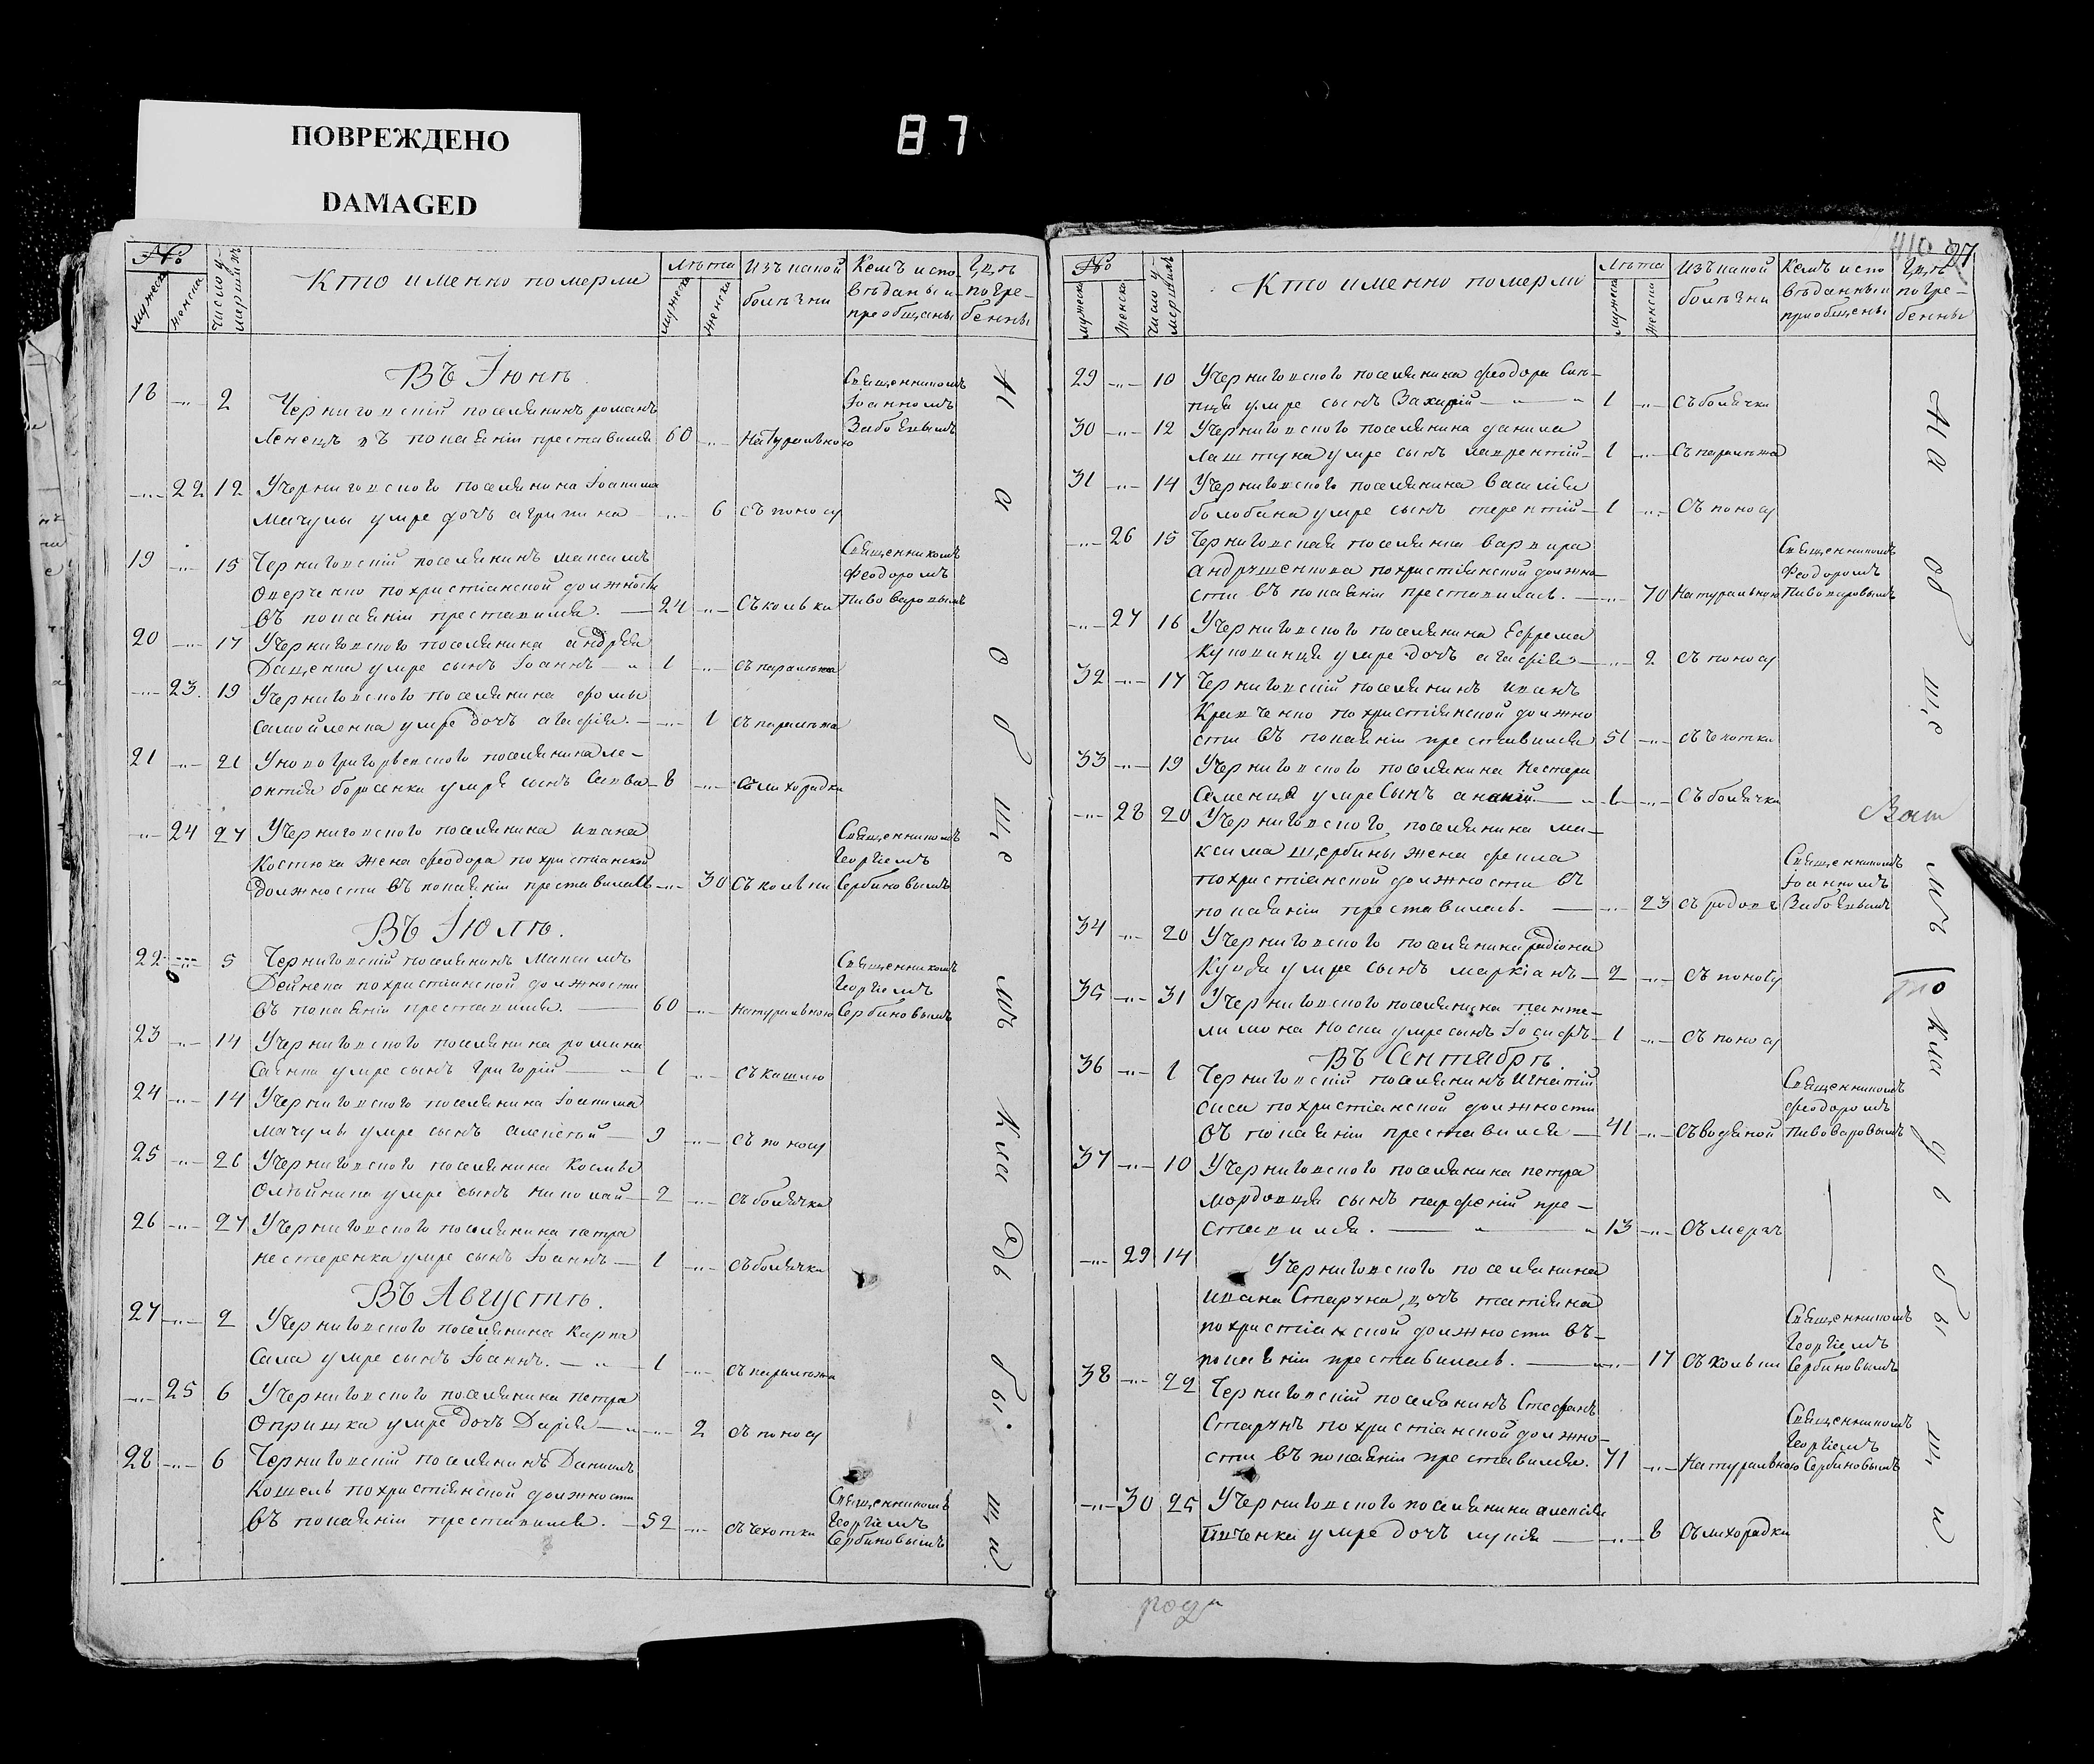 ПОВРЕЖДЕНО
DAMAGED
87
№
мужеска
женска
число умершихъ
Кто именно померли
лѣта
мужеска
женска
Изъ какой болѣзни
Кемъ испо-
веданы и
преобщены
Гдѣ
погре-
бенны
Въ Іюнѣ
18 2 Черниговскій поселянинъ романъ
Ленецъ въ покаяніи преставился 60 Натуральною
Священникомъ
Іоанномъ
22 12 У черниговского поселянина Іоакима
Мачулы умре дочъ агрипина 6 съ поносу
19 15 Черниговскій поселянинъ максимъ
по христіанской должности
въ покаяніи преставился. 24 съ кольки
Священникомъ
Феодоромъ
Пивоваровымъ
20 17 У черниговского поселянина андрея
Даценка умре сынъ Іоаннъ 1 съ паралежа
23 19 У черниговского поселянина фомы
Самойленка умре дочъ агафія. 1 съ паралежа
21 21 У новогригорьевского поселянина ле-
онтія борсенка умре сынъ Савва 8 съ лихорадки
24 27 У черниговского поселянина ивана
Костюка жена феодора по христіанской
должности въ покаяніи преставилась 30 съ кольки
Священникомъ
Георгіемъ
Сербиновымъ
Въ Іюлѣ.
22 5 Черниговскій поселянинъ Максимъ
Дейнека по христіанской должности
въ покаяніи преставился. 60 натуральною
Священникомъ
Георгіемъ
Сербиновымъ
23 14 У черниговского поселянина романа
Саенка умре сынъ григорій 1 съ кашлю
24 14 У черниговского поселянина Іоакима
мачулы умре сынъ алексѣй 9 съ поносу
25 26 У черниговского поселянина космы
Олѣйника умре сынъ николай 2 съ болячки
26 27 У черниговского поселянина петра
нестеренка умре сынъ Іоаннъ 1 съ болячки
Въ Августѣ.
27 2 У черниговского поселянина карпа
Сала умре сынъ Іоаннъ. 1 съ паралежа
25 6 У черниговского поселянина петра
Опришка умре дочъ Дарія 2 съ поносу
28 6 Черниговскій поселянинъ Даниилъ
Кошель по христіянской должности
въ покаяніи преставился. 52 съ чехотки
Священникомъ
Георгіемъ
Сербиновымъ
На общемъ кладьбищи.
410 97
№
мужеска
женска
число умершихъ
Кто именно померли
Лѣта
мужеска
женски
Изъ какой
болѣзни
Кемъ испо
веданны и
приобщены
Гдѣ
погре-
бенны
29 10 У черниговского поселянина феодора
умре сынъ Захарій 1 съ болячки
30 12 У черниговского поселянина данила
Лаштуна умре сынъ лаврентій 1 съ паралежа
31 14 У черниговского поселянина василія
болобана умре сынъ терентій 1 съ поносу
26 15 Черниговская поселянка варвара
Андрущенкова по христіянской должно-
сти въ покаяніи преставилась. 70 Натуральною
Священникомъ
Феодоромъ
Пивоваровымъ
27 16 У черниговского поселянина Ефрема
умре дочъ агафія 2 съ поносу
32 17 Черниговскій поселянинъ иванъ
Кравченко по христіянской должно
сти въ покаяніи преставился 51 съ чехотки
33 19 У черниговского поселянина нестера
Семенца умре Сынъ ананій 1 съ болячки
28 20 У черниговского поселянина ма-
ксима щербины жена фекла
по христіанской должности въ
покаяніи преставилась. 23 съ родовъ
Священникомъ
Іоанномъ
34 20 У черниговского поселянина радіона
умре сынъ маркіанъ 2 съ поносу
35 31 У черниговского поселянина панте-
лимона Носка умре сынъ Іосифъ 1 съ поносу
Въ Сентябрѣ.
36 1 Черниговскій поселянинъ Игнатій
по христіанской должности
въ покаяніи преставился 41 съ водяной
Священникомъ
феодоромъ
Пивоваровымъ
37 10 У черниговского поселянина петра
мордовця сынъ парфеній пре-
ставился. 13
29 14 У черниговского поселянина
ивана Старуна, дочъ татіяна
по христіанской должности въ
покаяніи преставилась. 17 съ кольки
Священникомъ
Георгіемъ
Сербиновымъ
38 22 Черниговскій поселянинъ Стефанъ
Старунъ по христіанской должно-
сти въ покаяніи преставился. 71 Натуральною
Священникомъ
Георгіемъ
Сербиновымъ
30 25 У черниговского поселянина алексія
Івченка умре дочъ лукія 8 съ лихорадки
На общемъ кладьбищи.